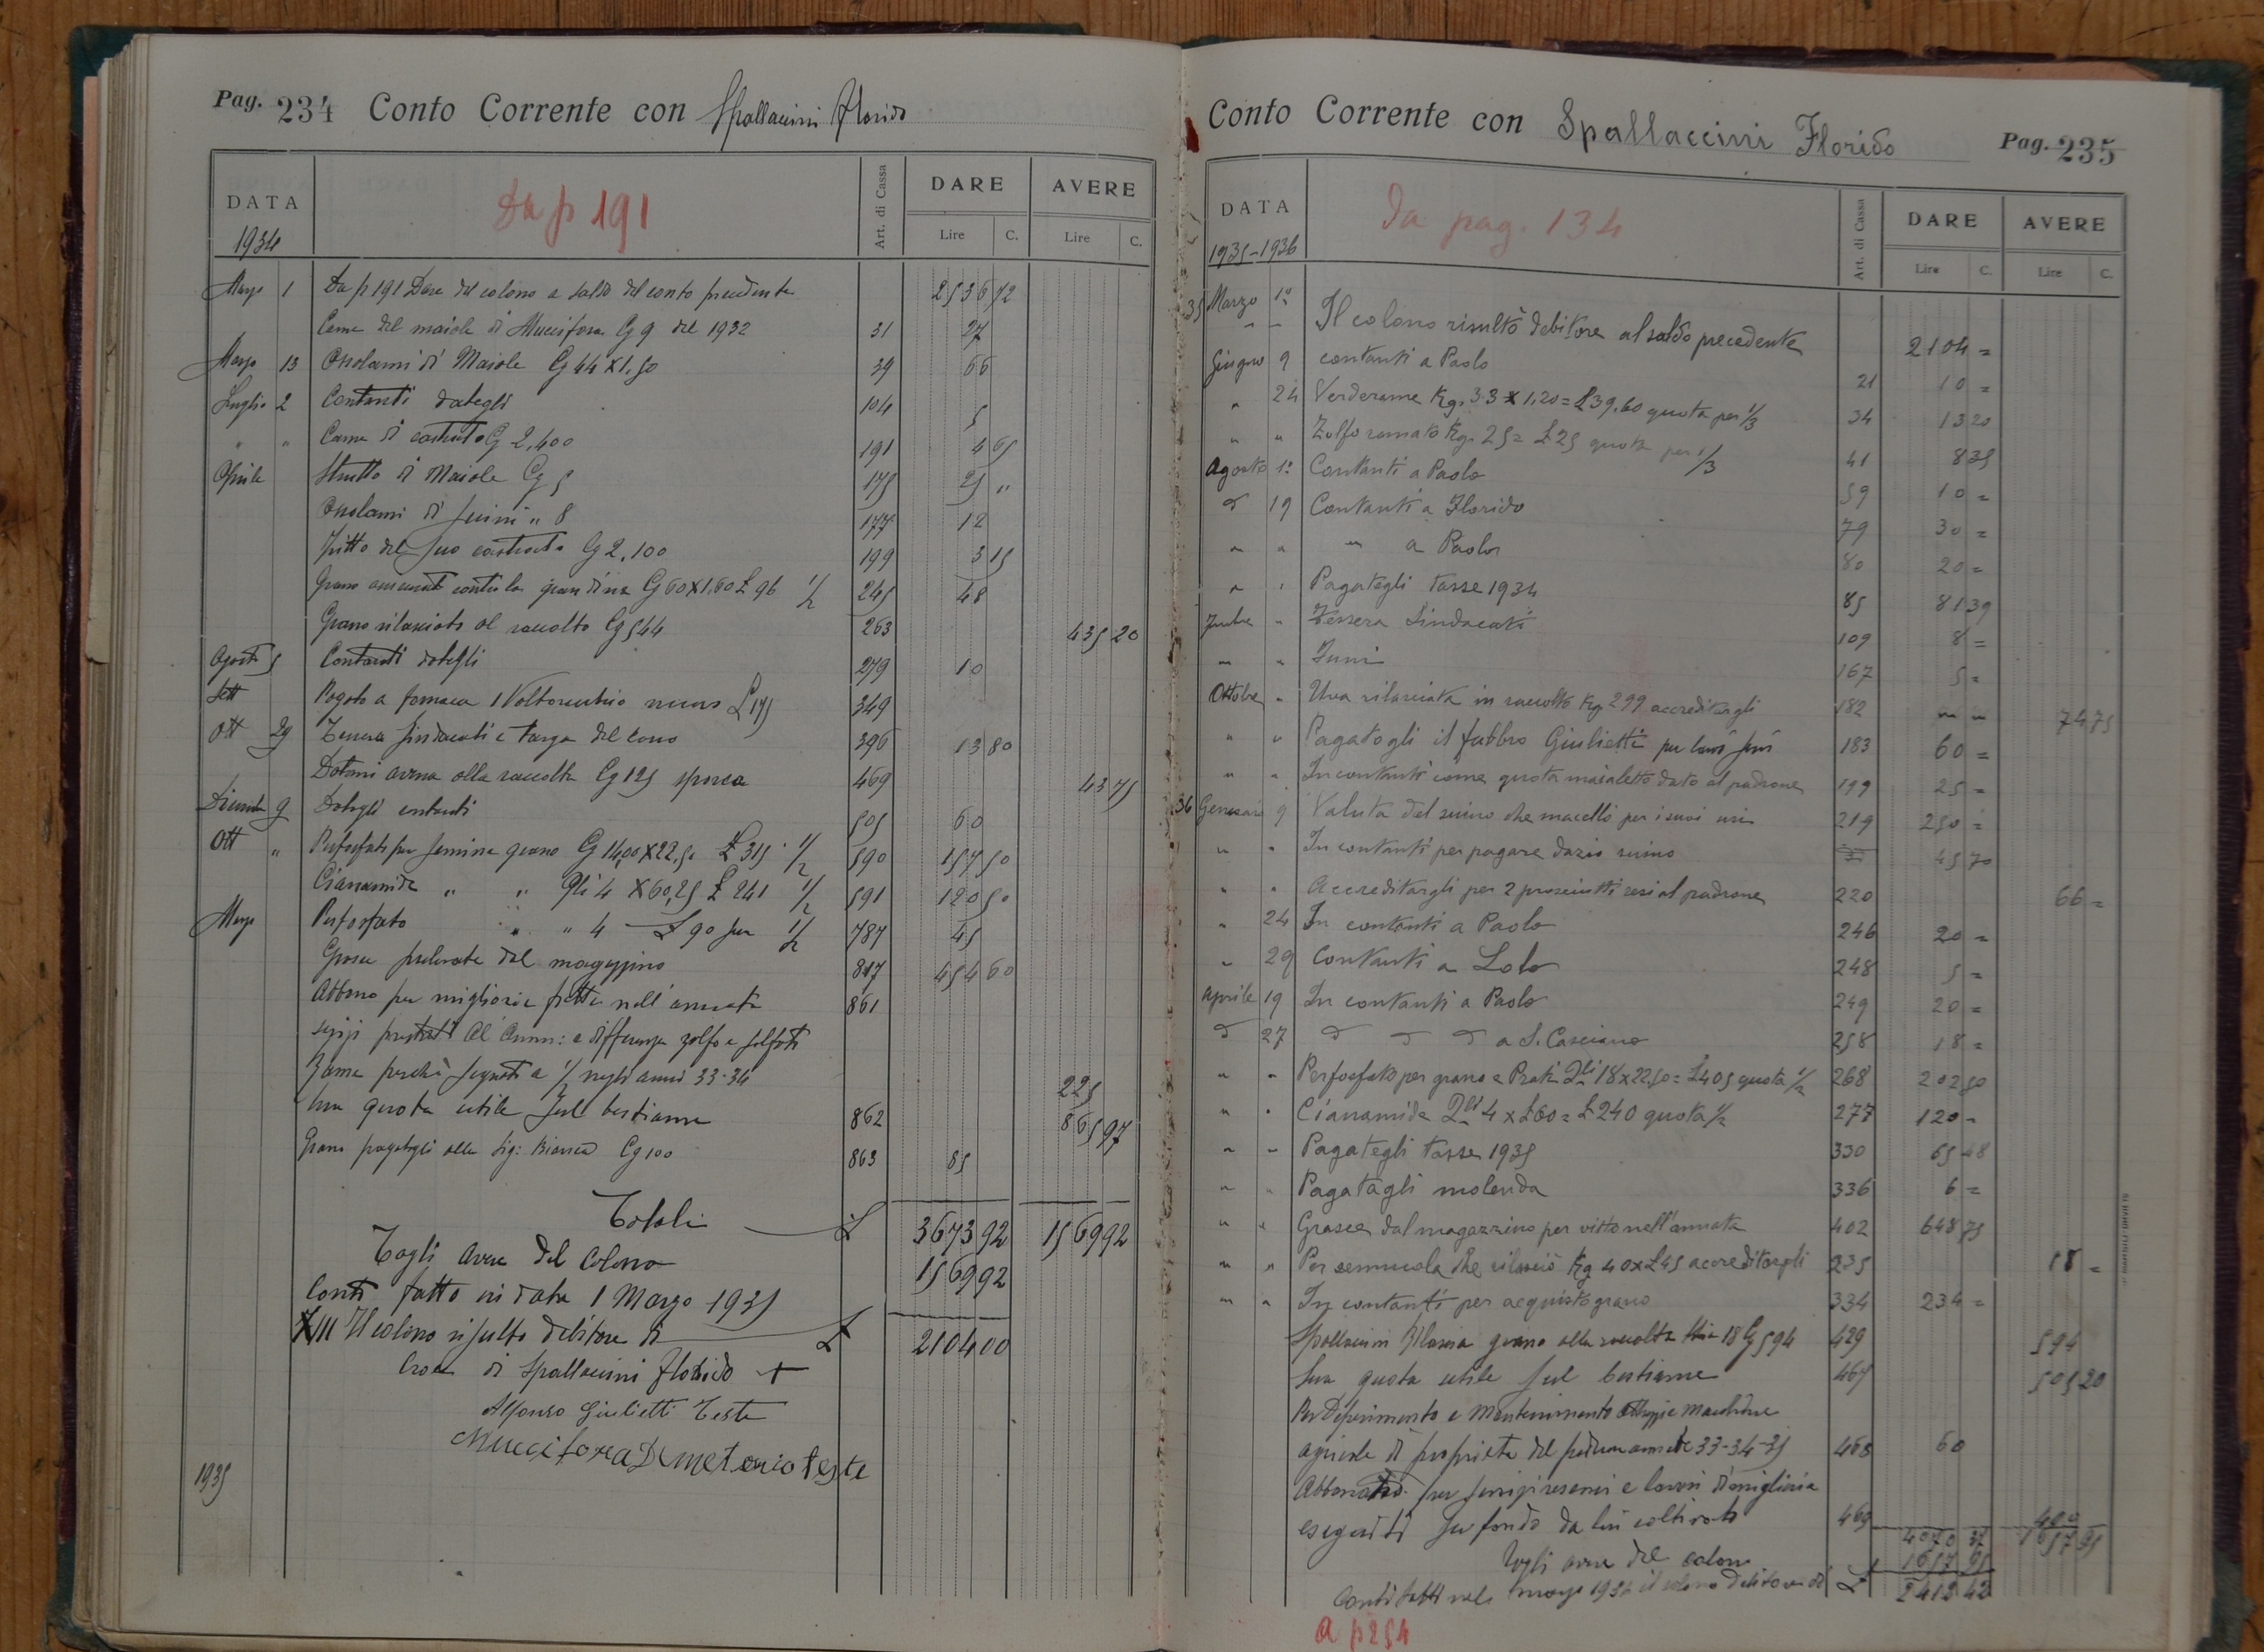 Pag. 234 Conto Corrente con Spallaccini Florido
DATA Da p 191 Art. di Cassa DARE AVERE
1934 Lire C. Lire C.
Marzo 1 Da p 191 Dare del colono a saldo del conto precedente 2536 72
Carne del maiale di Muccifora Cg 9 del 1932 31 27
Marzo 13 Ossolami di Maiale Cg 44 X 1,50 39 66
Luglio 2 Contanti dategli 104 5
" " Carne di castrato Cg 2,400 191 4 65
Aprile Strutto di Maiale Cg 5 175 25 "
Ossolami di suini " 8 177 12
Fitto del suo castrato Cg 2,100 199 3 15
Grano assicurato contro la grandine Cg 60 X 1,60 £ 96 1/2 245 48
Grano rilasciato al raccolto Cg 544 263 435 20
Agosto 5 Contanti dategli 279 10
Sett Pagato a fornaca 1 Voltorecchio nuovo £ 175 349
Ott 29 Tessera sindacati e targa del carro 396 13 80
Datomi avena alla raccolta Cg 125 sporca 469 43 75
Dicembre 9 Dategli contanti 505 60
Ott " Perfosfato per semina grano Cg 14,00 X 22,50 £ 315 1/2 590 157 50
Cianamide " " Qli 4 X 60,25 £ 241 1/2 591 120 50
Marzo Perfosfato " " 4 £ 90 per 1/2 787 45
Grasce prelevate dal magazzino 817 454 60
Abbono per migliorie fatte nell'annata 861
servizi prestati all'Amm: e differenza zolfo e solfato
rame perchè segnati a 1/2 negli anni 33-34 225
Sua quota utile sul bestiame 862 865 97
Grano pagatogli alla Sig: Bianca Cg 100 863 85
Totali £ 3673 92 1569 92
Togli avere del Colono 1569 92
Conti fatto in data 1 Marzo 1935
XIII Il colono risulta debitore di £ 2104 00
Croce di Spallaccini Florido +
Alfonso Giulietti Teste
Muccifora Demeterio teste
1935
Conto Corrente con Spallaccini Florido Pag. 235
DATA Da pag. 134 Art. di Cassa DARE AVERE
1935-1936 Lire C. Lire C.
35 Marzo 1º Il colono risultò debitore al saldo precedente 2104 =
Giugno 9 contanti a Paolo 21 10 =
" 24 Verderame Kg. 33 x 1,20 = £ 39,60 quota per 1/3 34 13 20
" " Zolfo ramato Kg. 25 = £ 25 quota per 1/3 41 8 35
Agosto 1º Contanti a Paolo 59 10 =
" 19 Contanti a Florido 79 30 =
" " " a Paolo 80 20 =
" " Pagategli tasse 1934 85 81 39
" Tessera Sindacati 109 8 =
" " Funi 167 5 =
Ottobre " Uva rilasciata in raccolto Kg 299 accreditargli 182 " " 74 75
" " Pagatogli il fabbro Giulietti per lavori suoi 183 60 =
" " In contanti come quota maialetto dato al padrone 199 25 =
36 Gennaio 9 Valuta del suino che macellò per i suoi usi 219 250 =
" " In contanti per pagare dazio suino 45 70
" " Accreditargli per 2 prosciutti resi al padrone 220 66 =
" 24 In contanti a Paolo 246 20 =
" 29 Contanti a Lolo 248 5 =
Aprile 19 In contanti a Paolo 249 20 =
" 27 " " " a S. Casciano 258 18 =
" " Perfosfato per grano e Prati Qli 18 x 22,50 = £ 405 quota 1/2 268 202 50
" " Cianamide Qli 4 x £ 60 = £ 240 quota 1/2 277 120 =
" " Pagategli tasse 1935 330 65 48
" " Pagatagli molenda 336 6 =
" " Grasce dal magazzino per vitto nell'annata 402 648 75
" " Per semucola che rilasciò Kg 40 x £ 45 accreditargli 235 18 =
" " In contanti per acquisto grano 334 234 =
Spallaccini Rilascia grano alla raccolta Cg 594 429 594
Sua quota utile sul bestiame 467 505 20
Per Deperimento e Mantenimento attrezzi e Macchine
agricole di proprietà del padrone annate 33-34-35 468 60
Abbonato per servizi e lavori di miglioria
eseguiti su fondo da lui coltivato 469 400
4070 37 1657 95
Togli avere del colono 1657 95
Conti fatti nel marzo 1936 il colono debitore di £ 2412 42
a p 254